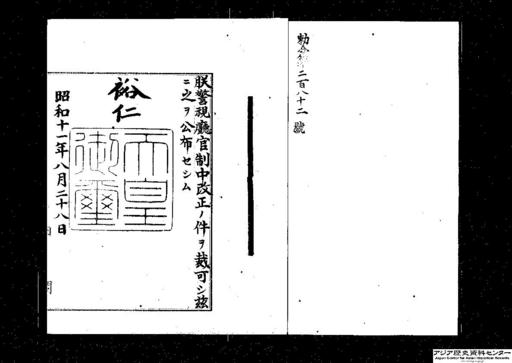 勅令第二百八十二號
朕警視廳官制中改正ノ件ヲ裁可シ茲
ニ之ヲ公布セシム
裕仁
天皇御璽
昭和十一年八月二十八日
アジア歴史資料センター
Japan Center for Asian Historical Records